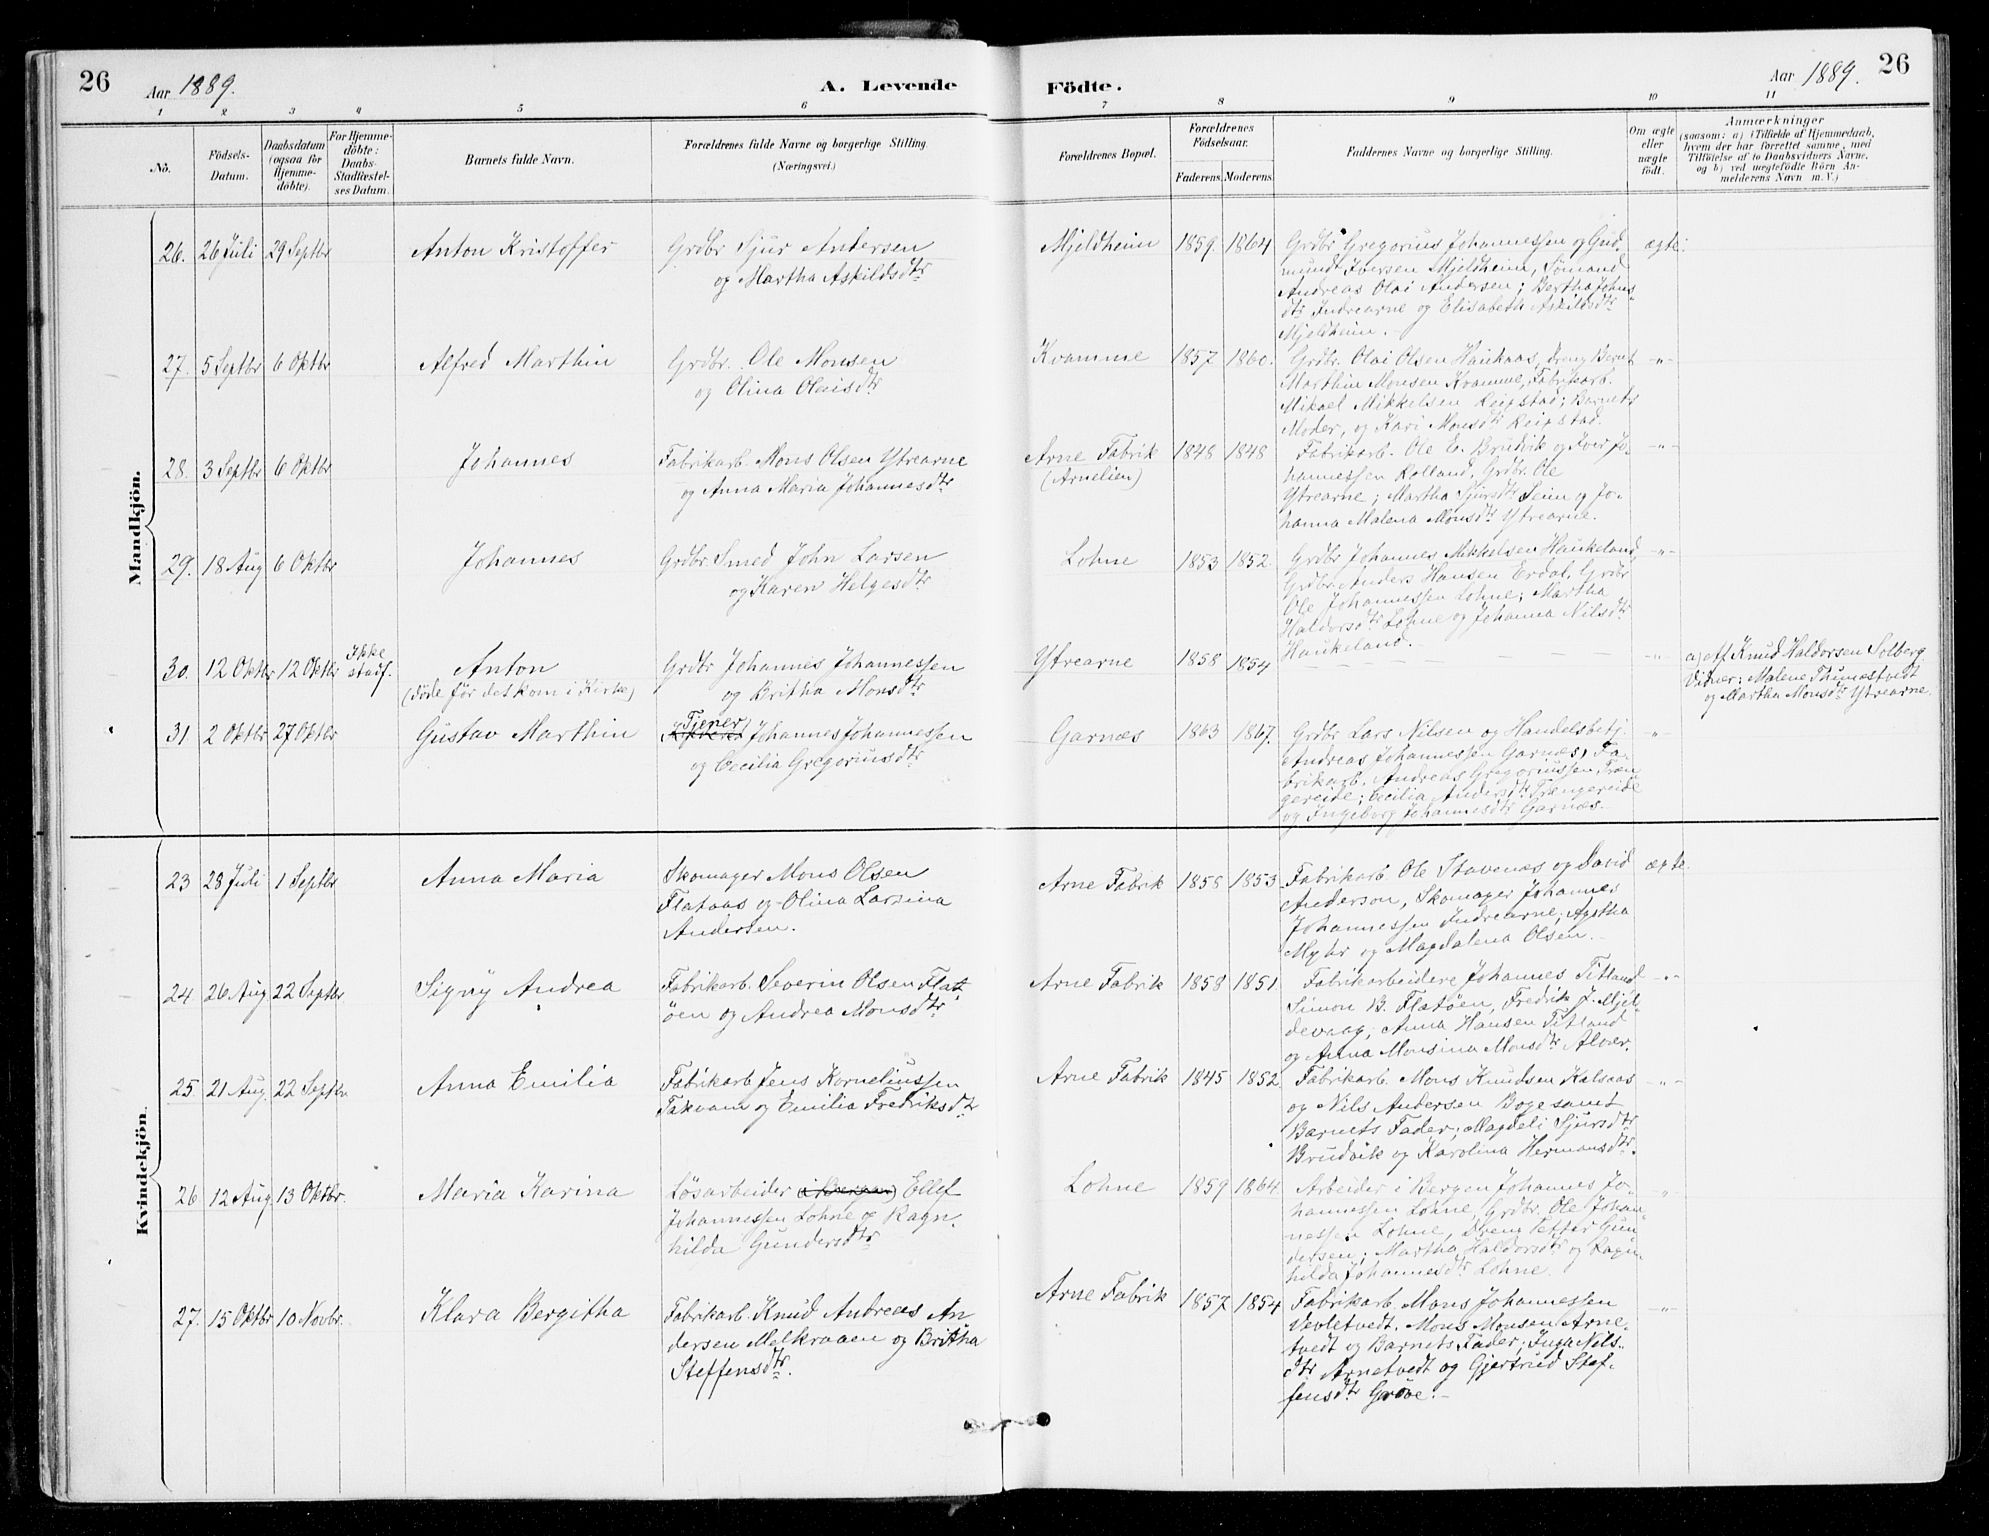 26
Aar 1889.
A. Levende
Födte.
Aar 1889.
26
1 2 3 4 5 6 7 8 9 10 11
No.
Födsels-Datum.
Daabsdatum (ogsaa for Hjemmedöbte).
For Hjemmedöbte: Daabs-Stadfæstelses Datum.
Barnets fulde Navn.
Forældrenes fulde Navne og borgerlige Stilling.
(Næringsvei.)
Forældrenes Bopæl.
Forældrenes Födselsaar.
Faderens. Moderens.
Faddernes Navne og borgerlige Stilling.
Om ægte eller uægte födt.
Anmærkninger
(saasom: a) i Tilfælde af Hjemmedaab, hvem der har forrettet samme, med Tilföielse af to Daabsvidners Navne, og b) ved uægtefödte Börn Anmelderens Navn m. V.)
Mandkjön.
26. 26 Juli 29 Septbr Anton Kristoffer Grdbr Sjur Andersen Mjeldheim 1859. 1864 Grdbr Gregorius Johannessen og Gud- ægte:
og Martha Askildsdtr mundt Iversen Mjeldheim, Sömand
Andreas Olai Andersen; Bertha Johns-
dtr Indrearne og Elisabeth Askildsdtr
Mjeldheim.-
27. 5 Septbr 6 Oktbr Alfred Marthin Grdbr. Ole Monsen Kvamme 1857 1860. Grdbr. Olai Olsen Haukaas, Dreng Bernt -"-
og Olina Olaisdtr Marthin Monsen Kvamme, Fabrikarb.
Mikael Mikkelsen Reipstad; Barnets
Moder, og Kari Monsdtr Reipstad.
28. 3 Septbr 6 Oktbr Johannes Fabrikarb. Mons Olsen Ytrearne Arne Fabrik 1848 1848 Fabrikarb. Ole E. Brudvik og Iver Jo- -"-
og Anna Maria Johannesdtr (Arnelien) hannessen Rolland, Grdbr. Ole
Ytrearne; Martha Sjursdtr Seim og Jo-
hanna Malena Monsdtr Ytrearne.
29. 18 Aug 6 Oktbr Johannes Grdbr. Smed John Larsen Lohne 1853 1852. Grdbr Johannes Mikkelsen Haukeland, -"-
og Karen Helgesdtr Grdbr. Anders Hansen Erdal, Grdbr
Ole Johannessen Lohne; Martha
Haldorsdtr Lohne og Johanna Nilsdtr
Haukeland.-
30. 12 Oktbr 12 Oktbr Ikke stadf. Anton Grdbr Johannes Johannessen Ytrearne 1858 1854 -"- a) Af Knud Haldorsen Solberg
(döde för det kom i Kirke) og Britha Monsdtr Vidner: Malene Thunestvedt
og Martha Monsdtr Ytrearne.
31 2 Oktbr 27 Oktbr Gustav Marthin Tjener Johannes Johannessen Garnæs 1863 1867. Grdbr Lars Nilsen og Handelsbetj. -"-
og Cecilia Gregoriusdtr Andreas Johannessen Garnæs, Fa-
brikarb. Andreas Gregoriussen Træn
gereide; Cecilia Andersdtr Trængereide
og Ingeborg Johannesdtr Garnæs.-
Kvindekjön.
23 28 Juli 1 Septbr Anna Maria Skomager Mons Olsen Arne Fabrik 1858 1853 Fabrikarb. Ole Stavenæs og David ægte.
Flataas og Olina Larsina Anderson, Skomager Johannes
Andersen. Johannessen Indrearne; Agatha
Myhr og Magdalena Olsen.-
24 26 Aug 22 Septbr Signy Andrea Fabrikarb. Severin Olsen Flat Arne Fabrik 1858 1851 Fabrikarbeidere Johannes Titland -"-
öen og Andrea Monsdtr Simon B. Flatöen, Fredrik J. Mjel-
devaag; Anna Hansen Titland
og Anna Monsina Monsdtr Alver.
25. 21 Aug. 22 Septbr Anna Emilia Fabrikarb Jens Korneliussen Arne Fabrik 1845 1852. Fabrikarb. Mons Knudsen Kalsaas -"-
Takvam og Emilia Fredriksdtr og Nils Andersen Boge samt
Barnets Fader; Magdeli Sjursdtr
Brudvik og Karolina Hermansdtr.
26 12 Aug. 13 Oktbr. Maria Karina Lösarbeider (i Bergen) Ellef Lohne 1859 1864 Arbeider i Bergen Johannes Jo- -"-
Johannessen Lohne og Ragn- hannessen Lohne, Grdbr. Ole Johan-
hilda Gundersdtr nessen Lohne, Dreng Petter Gun-
dersen; Martha Haldorsdtr og Ragn-
hilda Johannesdtr Lohne.
27. 15 Oktbr 10 Novbr. Klara Bergitha Fabrikarb. Knud Andreas An Arne Fabrik 1857 1854 Fabrikarb. Mons Johannessen -"-
dersen Melkraaen og Britha Vevletvedt. Mons Monsen Arne-
Steffensdtr. tvedt og Barnets Fader; Inga Nils-
dtr Arnetvedt og Gjertrud Stef-
fensdtr Grove.-